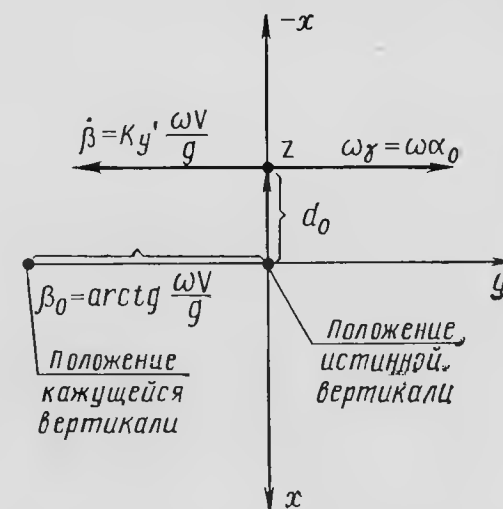 -x
β̇=Ky' ωV/g
z
ωγ=ωα₀
d₀
y
β₀=arctg ωV/g
Положение
кажущейся
вертикали
Положение
истинной
вертикали
x